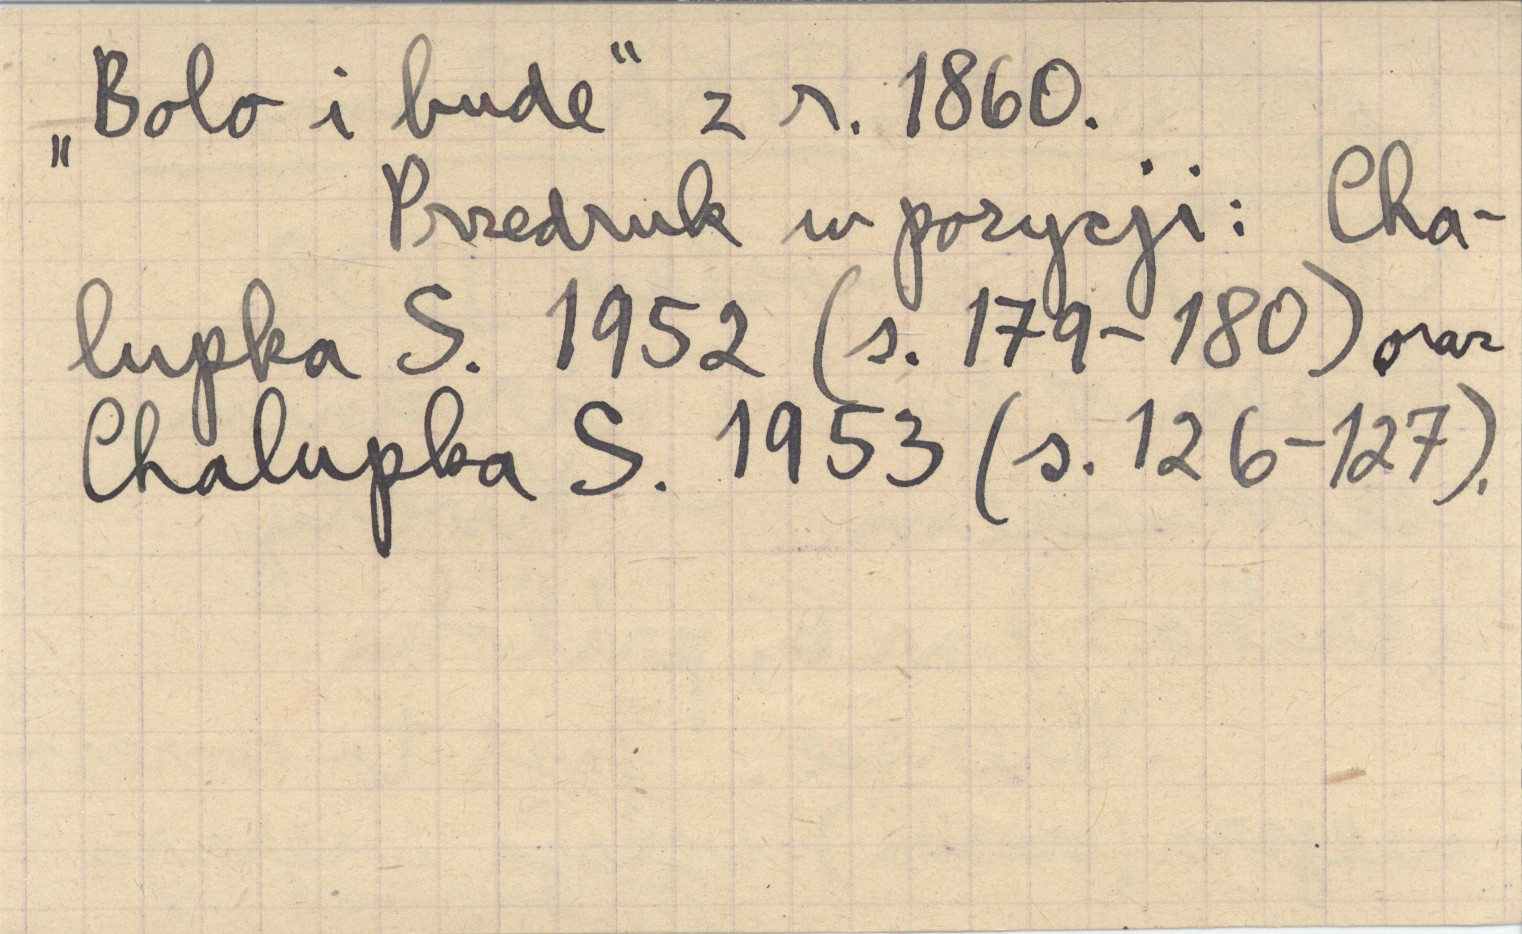 „Bolo i bude“ z r. 1860.
Przedruk w pozycji: Cha-
lupka S. 1952 (s. 179-180) oraz
Chalupka S. 1953 (s. 126-127).